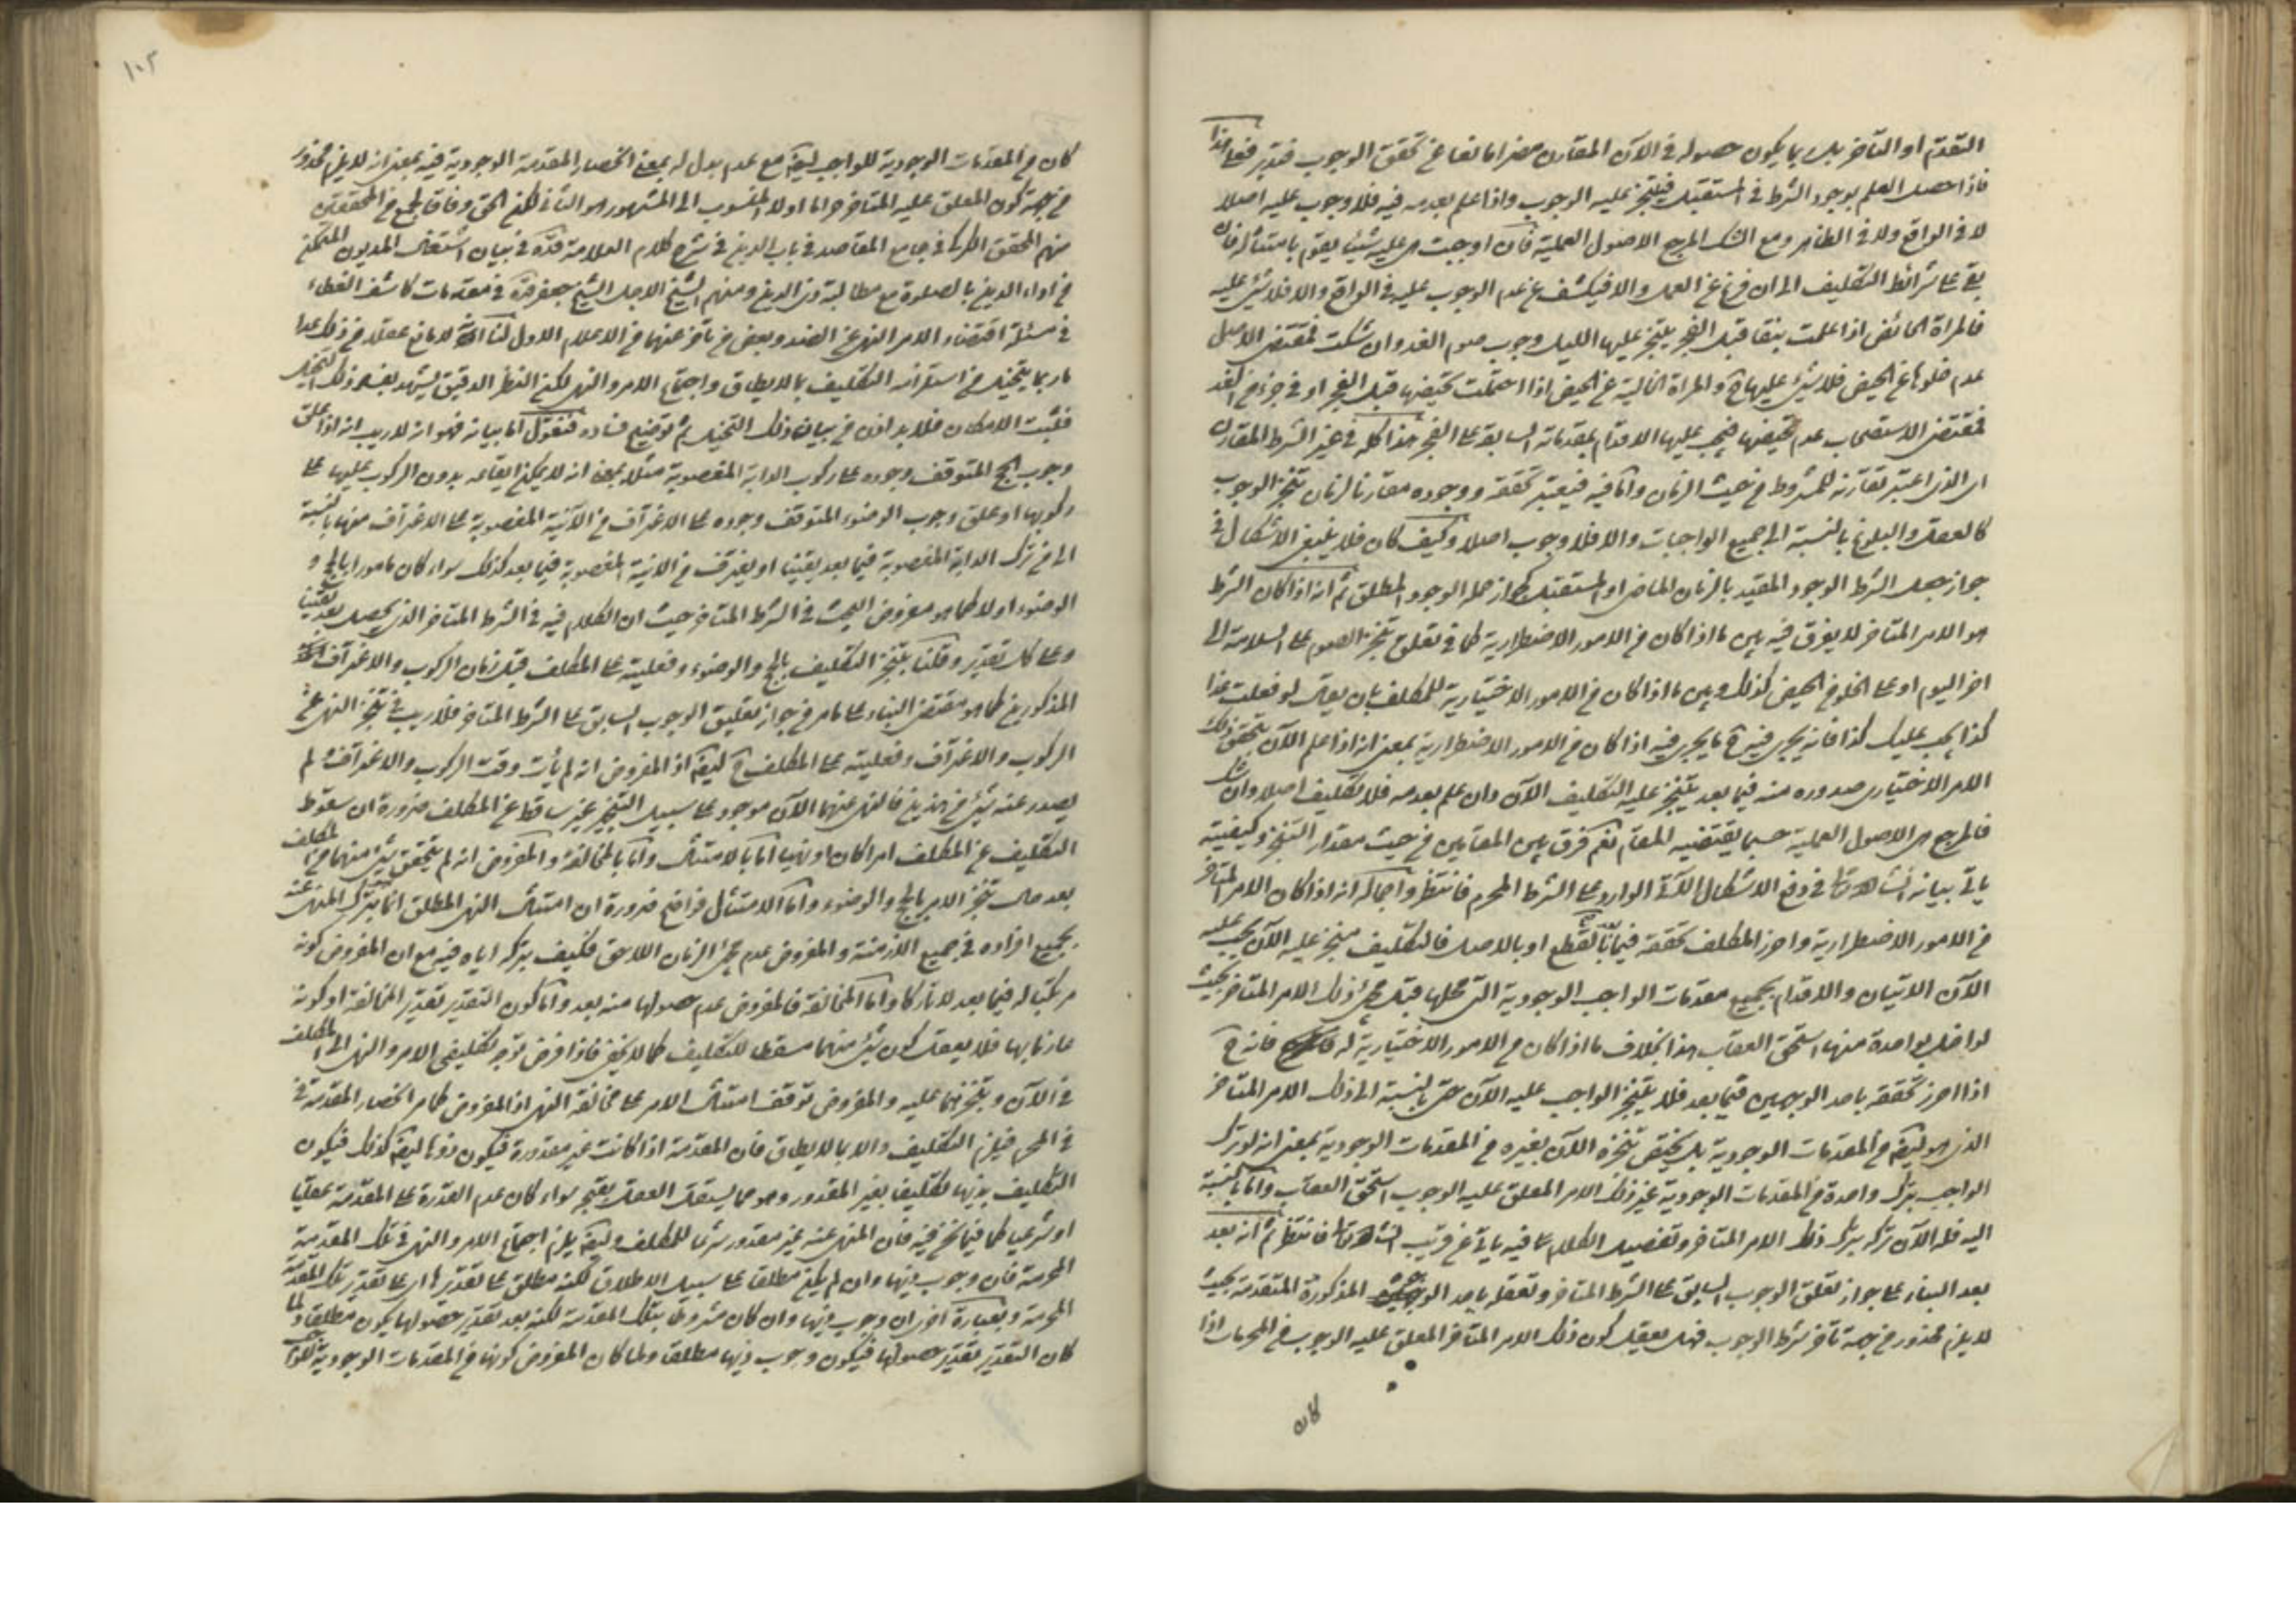 التقدم او التأخر بل بما يكون حصوله فى الآن المقارن مضرا مانعا عن تحقق الوجوب فتدبر فعلى هذا
فاذا حصل العلم بوجود الشرط فى المستقبل فيتنجز عليه الوجوب واذا علم بعدمه فيه فلا وجوب عليه اصلا
لا فى الواقع ولا فى الظاهر ومع الشك المرجع الاصول العملية فان اوجبت هى عليه شيئا يقوم بامتثاله فان
بقى على شرائط التكليف الى ان فرغ عن العمل والا فيكشف عن عدم الوجوب عليه فى الواقع والا فلا شئ عليه
فالمراة الحائض اذا علمت بنقائها قبل الفجر يتنجز عليها الليل وجوب صوم الغد وان شكت فمقتضى الاصل
عدم خلوها عن الحيض فلا شئ عليها ح والمراة الخالية عن الحيض اذا احتملت تحيضها قبل الفجر او فى جزء من الغد
فمقتضى الاستصحاب عدم تحيضها فيجب عليها الاقدام بمقدماته السابقة على الفجر هذا كله فى غير الشرط المقارن
اى الذى اعتبر تقارنه للمشروط من حيث الزمان واما فيه فيعتبر تحققه ووجوده مقارنا لزمان تنجز الوجوب
كالعقل والبلوغ بالنسبة الى جميع الواجبات والا فلا وجوب اصلا وكيف كان فلا ينبغى الاشكال فى
جواز جعل الشرط الوجود المقيد بالزمان الماضى او المستقبل كجواز جعله الوجود المطلق ثم انه اذا كان الشرط
هو الامر المتاخر لا يفرق فيه بين ما اذا كان من الامور الاضطرارية كما فى تعليق تنجز الصوم على السلامة الى
اخر اليوم او على الخلو من الحيض كذلك وبين ما اذا كان من الامور الاختيارية للمكلف بان يقال لو فعلت غدا
كذا يجب عليك كذا فانه يجرى فيه ح ما يجرى فيه اذا كان من الامور الاضطرارية بمعنى انه اذا علم الآن بتحقق ذلك
الامر الاختيارى صدوره منه فيما بعد يتنجز عليه التكليف الآن وان علم بعدمه فلا تكليف اصلا وان شك
فالمرجع هى الاصول العملية حسبما يقتضيه المقام نعم فرق بين المقامين من حيث مقدار التنجز وكيفيته
ياتى بيانه انشاء الله تعالى فى دفع الاشكال الآتى الوارد على الشرط المحرم فانتظر واجماله انه اذا كان الامر المتاخر
من الامور الاضطرارية واحرز المكلف تحققه فيما يأتى بالقطع او بالاصل فالتكليف منجز عليه الآن يجب عليه
الآن الاتيان والاقدام بجميع مقدمات الواجب الوجودية التى محلها قبل مجئ ذلك الامر المتاخر بحيث
لو اخل بواحدة منها استحق العقاب هذا بخلاف ما اذا كان من الامور الاختيارية له فانه ح
اذا احرز تحققه باحد الوجهين فيما بعد فلا يتنجز الواجب عليه الآن حتى بالنسبة الى ذلك الامر المتاخر
الذى هو ايضا من المقدمات الوجودية بل يختص تنجزه الآن بغيره من المقدمات الوجودية بمعنى انه لو ترك
الواجب بترك واحدة من المقدمات الوجودية غير ذلك الامر المعلق عليه الوجوب استحق العقاب واما بالنسبة
اليه فله الآن تركه بترك ذلك الامر المتاخر وتفصيل الكلام فيه ياتى عن قريب انشاء الله تعالى فانتظر ثم انه بعد
بعد البناء على جواز تعلق الوجوب السابق على الشرط المتاخر وتعقله باحد الوجوه المذكورة المتقدمة بحيث
لا يلزم محذور من جهة تاخر شرط الوجوب فهل يعقل كون ذلك الامر المتاخر المعلق عليه الوجوب من المحرمات اذا
كان
١٠٢
كان من المقدمات الوجودية للواجب ايضا مع عدم بدل له بمعنى انحصار المقدمة الوجودية فيه بمعنى انه لا يلزم محذور
من جهة كون المعلق عليه المتاخر حراما اولا المنسوب الى المشهور هو الثانى لكن الحق وفاقا لجمع من المحققين
منهم المحقق الكركى فى جامع المقاصد فى باب الدين فى شرح كلام العلامة قده فى بيان اشتغال المديون المتمكن
من اداء الدين بالصلوة مع مطالبة ذى الدين ومنهم الشيخ الاجل الشيخ جعفر قده فى مقدمات كاشف الغطاء
فى مسئلة اقتضاء الامر النهى عن الضد وبعض من تاخر عنهما من الاعلام الاول لنا انه لا مانع عقلا من ذلك عدا
ما ربما يتخيل من استلزامه التكليف بما لا يطاق واجتماع الامر والنهى لكن النظر الدقيق يشهد بفساد ذلك التخيل
فثبت الامكان فلا بد اذن من بيان ذلك التخيل ثم توضيح فساده فنقول اما بيانه فهو انه لا ريب انه اذا علق
وجوب الحج المتوقف وجوده على ركوب الدابة المغصوبة مثلا بمعنى انه لا يمكن ايقاعه بدون الركوب عليها على
ركوبها او علق وجوب الوضوء المتوقف وجوده على الاغتراف من الآنية المغصوبة على الاغتراف منها بالنسبة
الى من ترك الدابة المغصوبة فيما بعد يقينا او يغترف من الانية المغصوبة فيما بعد كذلك سواء كان مامورا بالحج و
الوضوء اولا كما هو مفروض البحث فى الشرط المتاخر حيث ان الكلام فيه فى الشرط المتاخر الذى يحصل بعد يقينا
وعلى كل تقدير وقلنا بتنجز التكليف بالحج والوضوء وفعليته على المكلف قبل زمان الركوب والاغتراف
المذكورين كما هو مقتضى البناء على ما مر من جواز تعليق الوجوب السابق على الشرط المتاخر فلا ريب فى تنجز النهى عن
الركوب والاغتراف وفعليته على المكلف ح ايضا اذ المفروض انه لم يأت وقت الركوب والاغتراف ثم لم
يصدر عنه شئ من هذين فالنهى عنهما الآن موجود على سبيل التنجز غير ساقط عن المكلف ضرورة ان سقوط
التكليف عن المكلف امرا كان او نهيا اما بالامتثال واما بالمخالفة والمفروض انه لم يتحقق شئ منهما من المكلف
بعد حال تنجز الامر بالحج والوضوء واما الامتثال فواضح ضرورة ان امتثال النهى المطلق انما بترك المنهى عنه
بجميع افراده فى جميع الازمنة والمفروض عدم مجئ الزمان اللاحق فكيف بتركه اياه فيه مع ان المفروض كونه
مرتكبا له فيما بعد لا تاركا واما المخالفة فالمفروض عدم حصولها منه بعد واما كون التقدير تقدير المخالفة او كونه
عازما بها فلا يعقل كون شئ منهما مسقطا للتكليف كما لا يخفى فاذا فرض توجه تكليفى الامر والنهى الى المكلف
فى الآن وتنجزهما عليه والمفروض توقف امتثال الامر على مخالفة النهى اذ المفروض كما مر انحصار المقدمة فى
فى المحرم فيلزم التكليف والا بما لا يطاق فان المقدمة اذا كانت غير مقدورة فيكون ذوها ايضا كذلك فيكون
التكليف بذيها تكليفا بغير المقدور وهو مما يستقل العقل بقبحه سواء كان عدم القدرة على المقدمة عقليا
او شرعيا كما فيما نحن فيه فان المنهى عنه غير مقدور شرعا للمكلف وايضا يلزم اجتماع الامر والنهى فى تلك المقدمة
المحرمة فان وجوب ذيها وان لم يكن مطلقا على سبيل الاطلاق لكنه مطلق على تقديرها اى على تقدير تلك المقدمة
المحرمة وبعبارة اخرى ان وجوب ذيها وان كان مشروطا بتلك المقدمة لكنه بعد تقدير حصولها يكون مطلقا ولما
كان التقدير تقدير حصولها فيكون وجوب ذيها مطلقا ولما كان المفروض كونها من المقدمات الوجودية للواجب